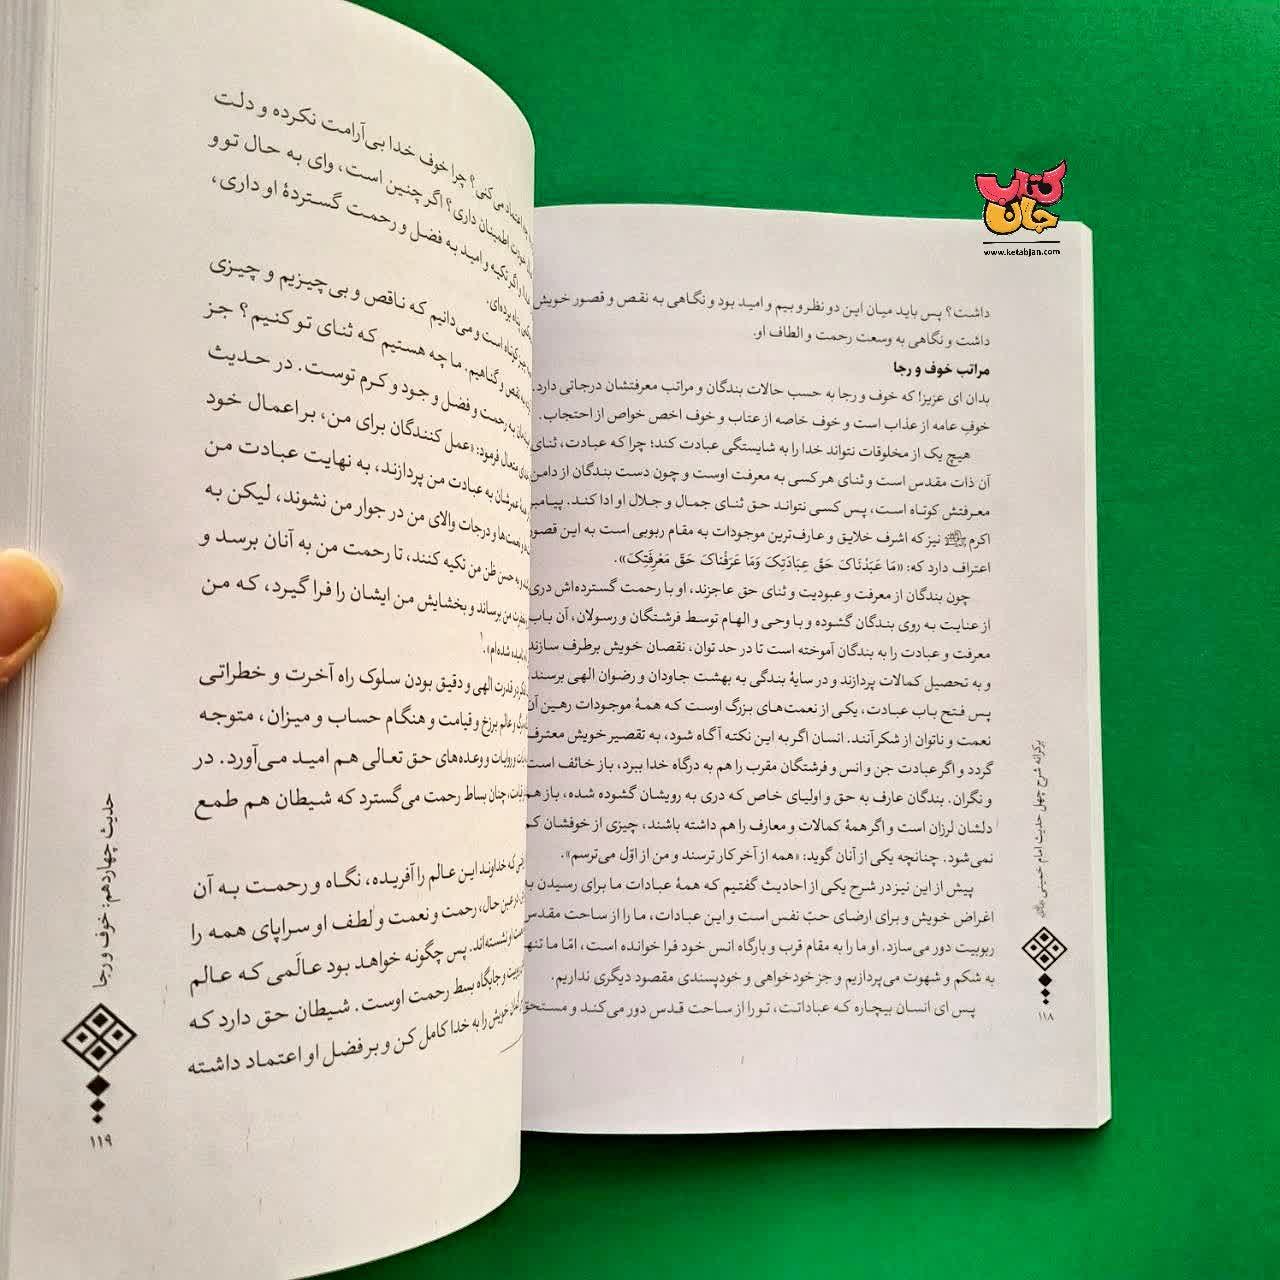 کتاب جان
www.ketabjan.com
داشت؟ پس باید میان این دو نظر و بیم و امید بود و نگاهی به نقص و قصور خویش
داشت و نگاهی به وسعت رحمت و الطاف او.
مراتب خوف و رجا
بدان ای عزیز! که خوف و رجا به حسب حالات بندگان و مراتب معرفتشان درجاتی دارد.
خوفِ عامه از عذاب است و خوف خاصه از عتاب و خوف اخص خواص از احتجاب.
هیچ یک از مخلوقات نتواند خدا را به شایستگی عبادت کند؛ چرا که عبادت، ثنای
آن ذات مقدس است و ثنای هر کسی به معرفت اوست و چون دست بندگان از دامن
معرفتش کوتاه است، پس کسی نتواند حق ثنای جمال و جلال او ادا کند. پیامبر
اکرم ﷺ نیز که اشرف خلایق و عارف‌ترین موجودات به مقام ربوبی است به این قصور
اعتراف دارد که: «مَا عَبَدْنَاکَ حَقَّ عِبَادَتِکَ وَمَا عَرَفْنَاکَ حَقَّ مَعْرِفَتِکَ».
چون بندگان از معرفت و عبودیت و ثنای حق عاجزند، او با رحمت گسترده‌اش دری
از عنایت به روی بندگان گشوده و با وحی و الهام توسط فرشتگان و رسولان، آن باب
معرفت و عبادت را به بندگان آموخته است تا در حد توان، نقصان خویش برطرف سازند
و به تحصیل کمالات پردازند و در سایهٔ بندگی به بهشت جاودان و رضوان الهی برسند
پس فتح باب عبادت، یکی از نعمت‌های بزرگ اوست که همهٔ موجودات رهین آن
نعمت و ناتوان از شکر آنند. انسان اگر به این نکته آگاه شود، به تقصیر خویش معترف
گردد و اگر عبادت جن و انس و فرشتگان مقرب را هم به درگاه خدا ببرد، باز خائف است
و نگران. بندگان عارف به حق و اولیای خاص که دری به رویشان گشوده شده، باز هم
دلشان لرزان است و اگر همهٔ کمالات و معارف را هم داشته باشند، چیزی از خوفشان کم
نمی‌شود. چنانچه یکی از آنان گوید: «همه از آخر کار ترسند و من از اوّل می‌ترسم».
پیش از این نیز در شرح یکی از احادیث گفتیم که همهٔ عبادات ما برای رسیدن به
اغراض خویش و برای ارضای حبّ نفس است و این عبادات، ما را از ساحت مقدس
ربوبیت دور می‌سازد. او ما را به مقام قرب و بارگاه انس خود فرا خوانده است، امّا ما تنها
به شکم و شهوت می‌پردازیم و جز خودخواهی و خودپسندی مقصود دیگری نداریم.
پس ای انسان بیچاره که عباداتت، تو را از ساحت قدس دور می‌کند و مستحق
برکرانه شرح چهل حدیث امام خمینی
۱۱۸
اعتماد می‌کنی؟ چرا خوف خدا بی‌آرامت نکرده و دلت
اطمینان داری؟ اگر چنین است، وای به حال تو و
و اگر تکیه و امید به فضل و رحمت گستردهٔ او داری،
پناه برده‌ای.
کوتاه است و می‌دانیم که ناقص و بی‌چیزیم و چیزی
نقص و گناهیم. ما چه هستیم که ثنای تو کنیم؟ جز
به رحمت و فضل و جود و کرم توست. در حدیث
متعال فرمود: «عمل کنندگان برای من، بر اعمال خود
عمرشان به عبادت من پردازند، به نهایت عبادت من
و نعمت‌ها و درجات والای من در جوار من نشوند، لیکن به
و به حسن ظن من تکیه کنند، تا رحمت من به آنان برسد و
من برساند و بخشایش من ایشان را فرا گیرد، که من
نامیده شده‌ام».۱
در قدرت الهی و دقیق بودن سلوک راه آخرت و خطراتی
و عالم برزخ و قیامت و هنگام حساب و میزان، متوجه
و روایات و وعده‌های حق تعالی هم امید می‌آورد. در
چنان بساط رحمت می‌گسترد که شیطان هم طمع
که خداوند این عالم را آفریده، نگاه و رحمت به آن
در عین حال، رحمت و نعمت و لطف او سراپای همه را
نشسته‌اند. پس چگونه خواهد بود عالَمی که عالم
و جایگاه بسط رحمت اوست. شیطان حق دارد که
خویش را به خدا کامل کن و بر فضل او اعتماد داشته
حدیث چهاردهم: خوف و رجا
۱۱۹